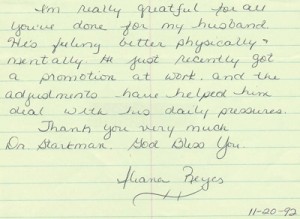 I'm really greatful for all
you've done for my husband
He's feeling better physically &
mentally. He just recently got
a promotion at work. and the
adjustments have helped him
deal with his daily pressures.
Thank you very much
Dr. Startman. God Bless You.
Iliana Reyes
11-20-92